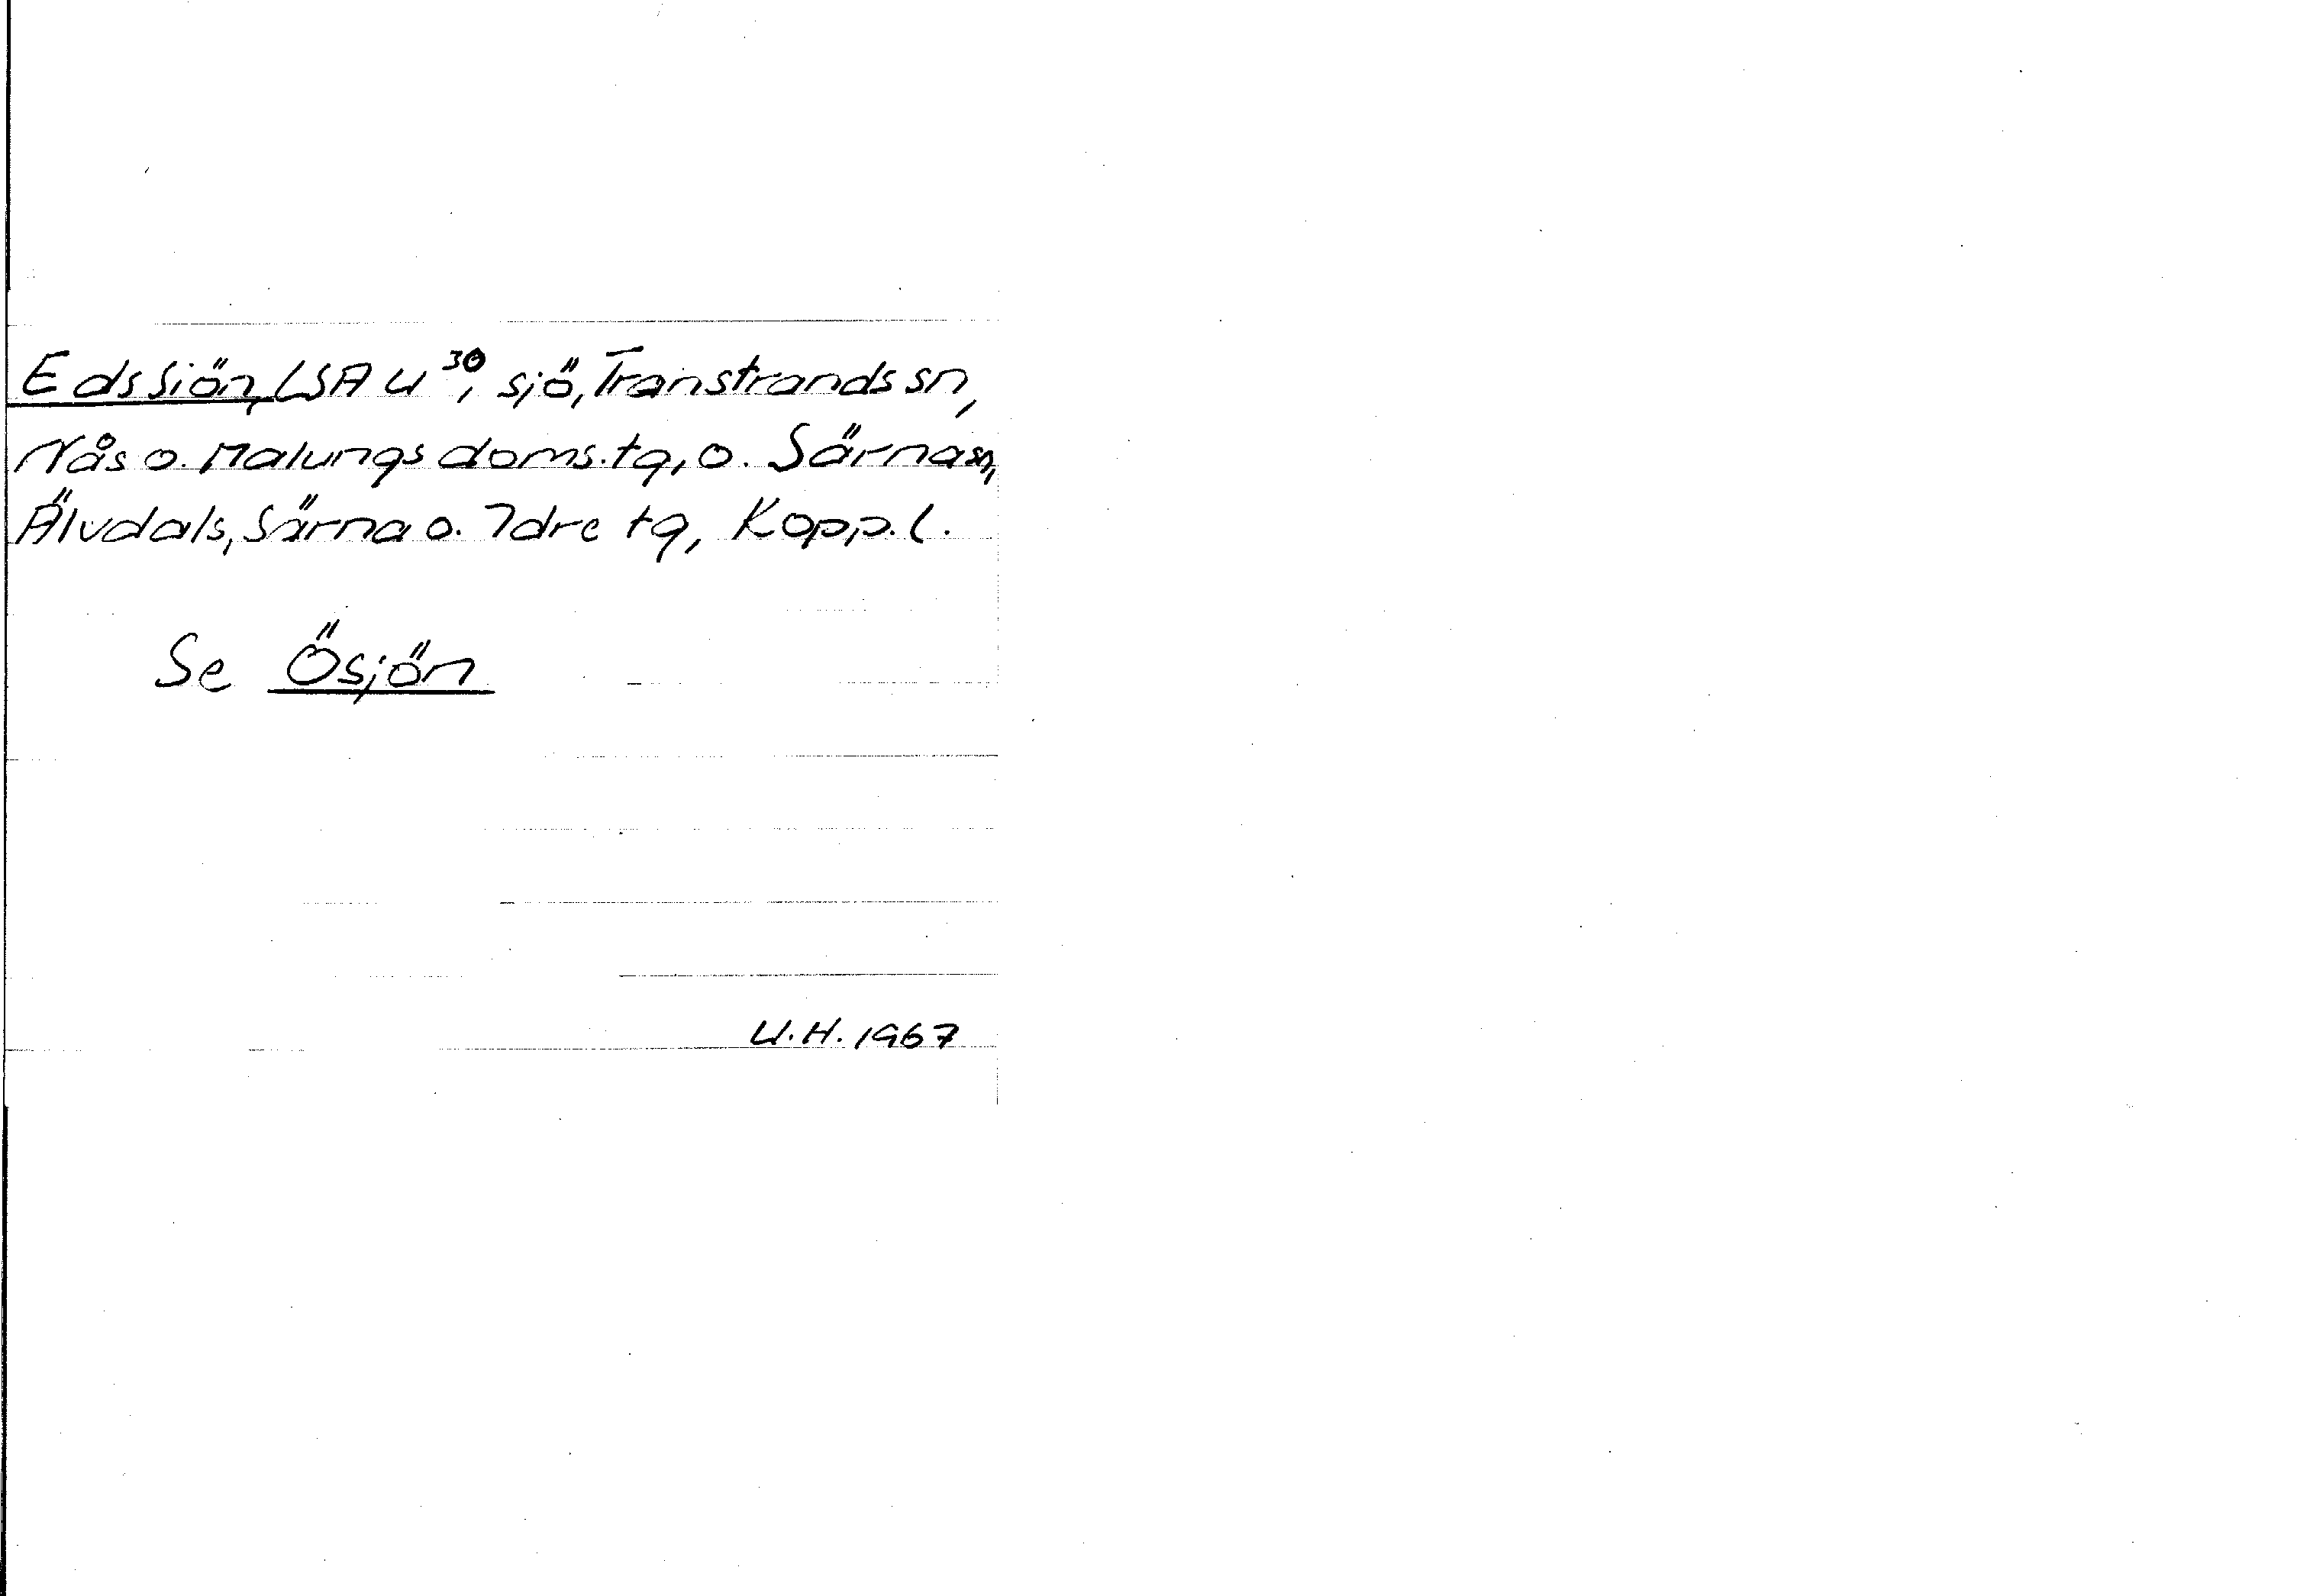 Edssiön, LSA U³⁰, sjö, Transtrands sn,
Nås o. Malungs doms. tg, o. Särna sn,
Älvdals, Särna o. Idre tg, Kopp. l.
Se Ösjön
U.H. 1967